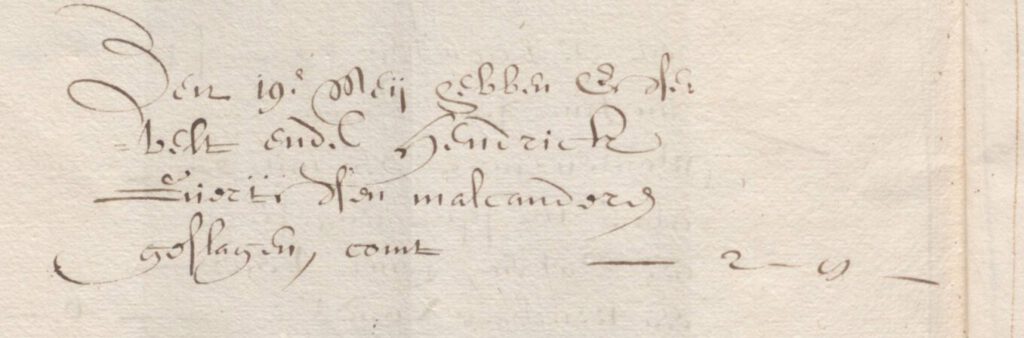 Den 19e Meij hebben
velt ende Hendrick
malcanderen
geslagen, comt — 2 – 9 —